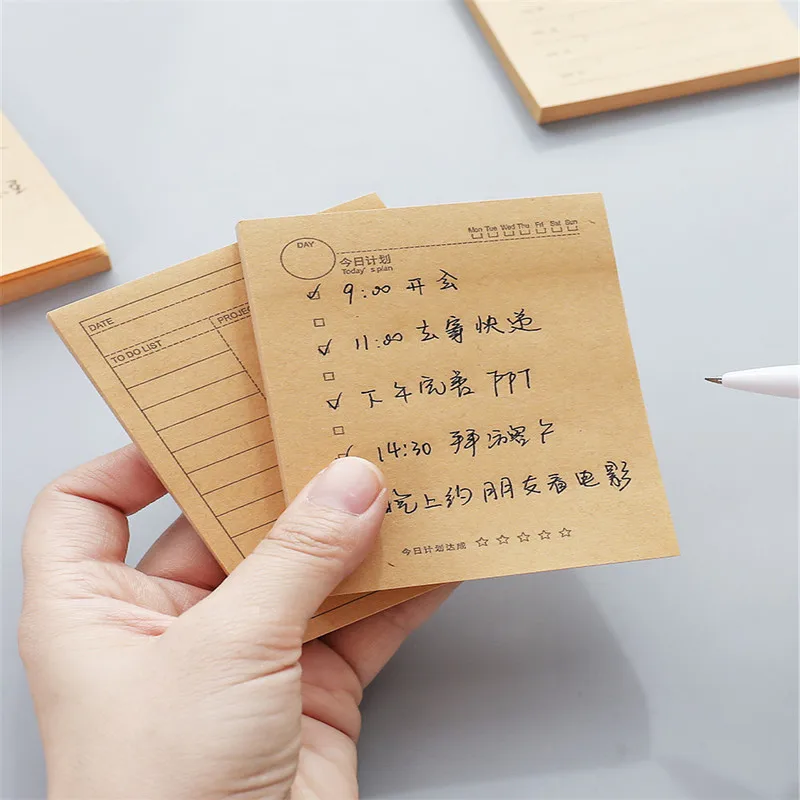 DATE
PROJE
TO DO LIST
DAY
Mon Tue Wed Thu Fri Sat Sun
今日计划
Today's plan
9:00 开会
11:00 去寄快递
下午完善 PPT
14:30 拜访客户
晚上约朋友看电影
今日计划达成 ☆☆☆☆☆